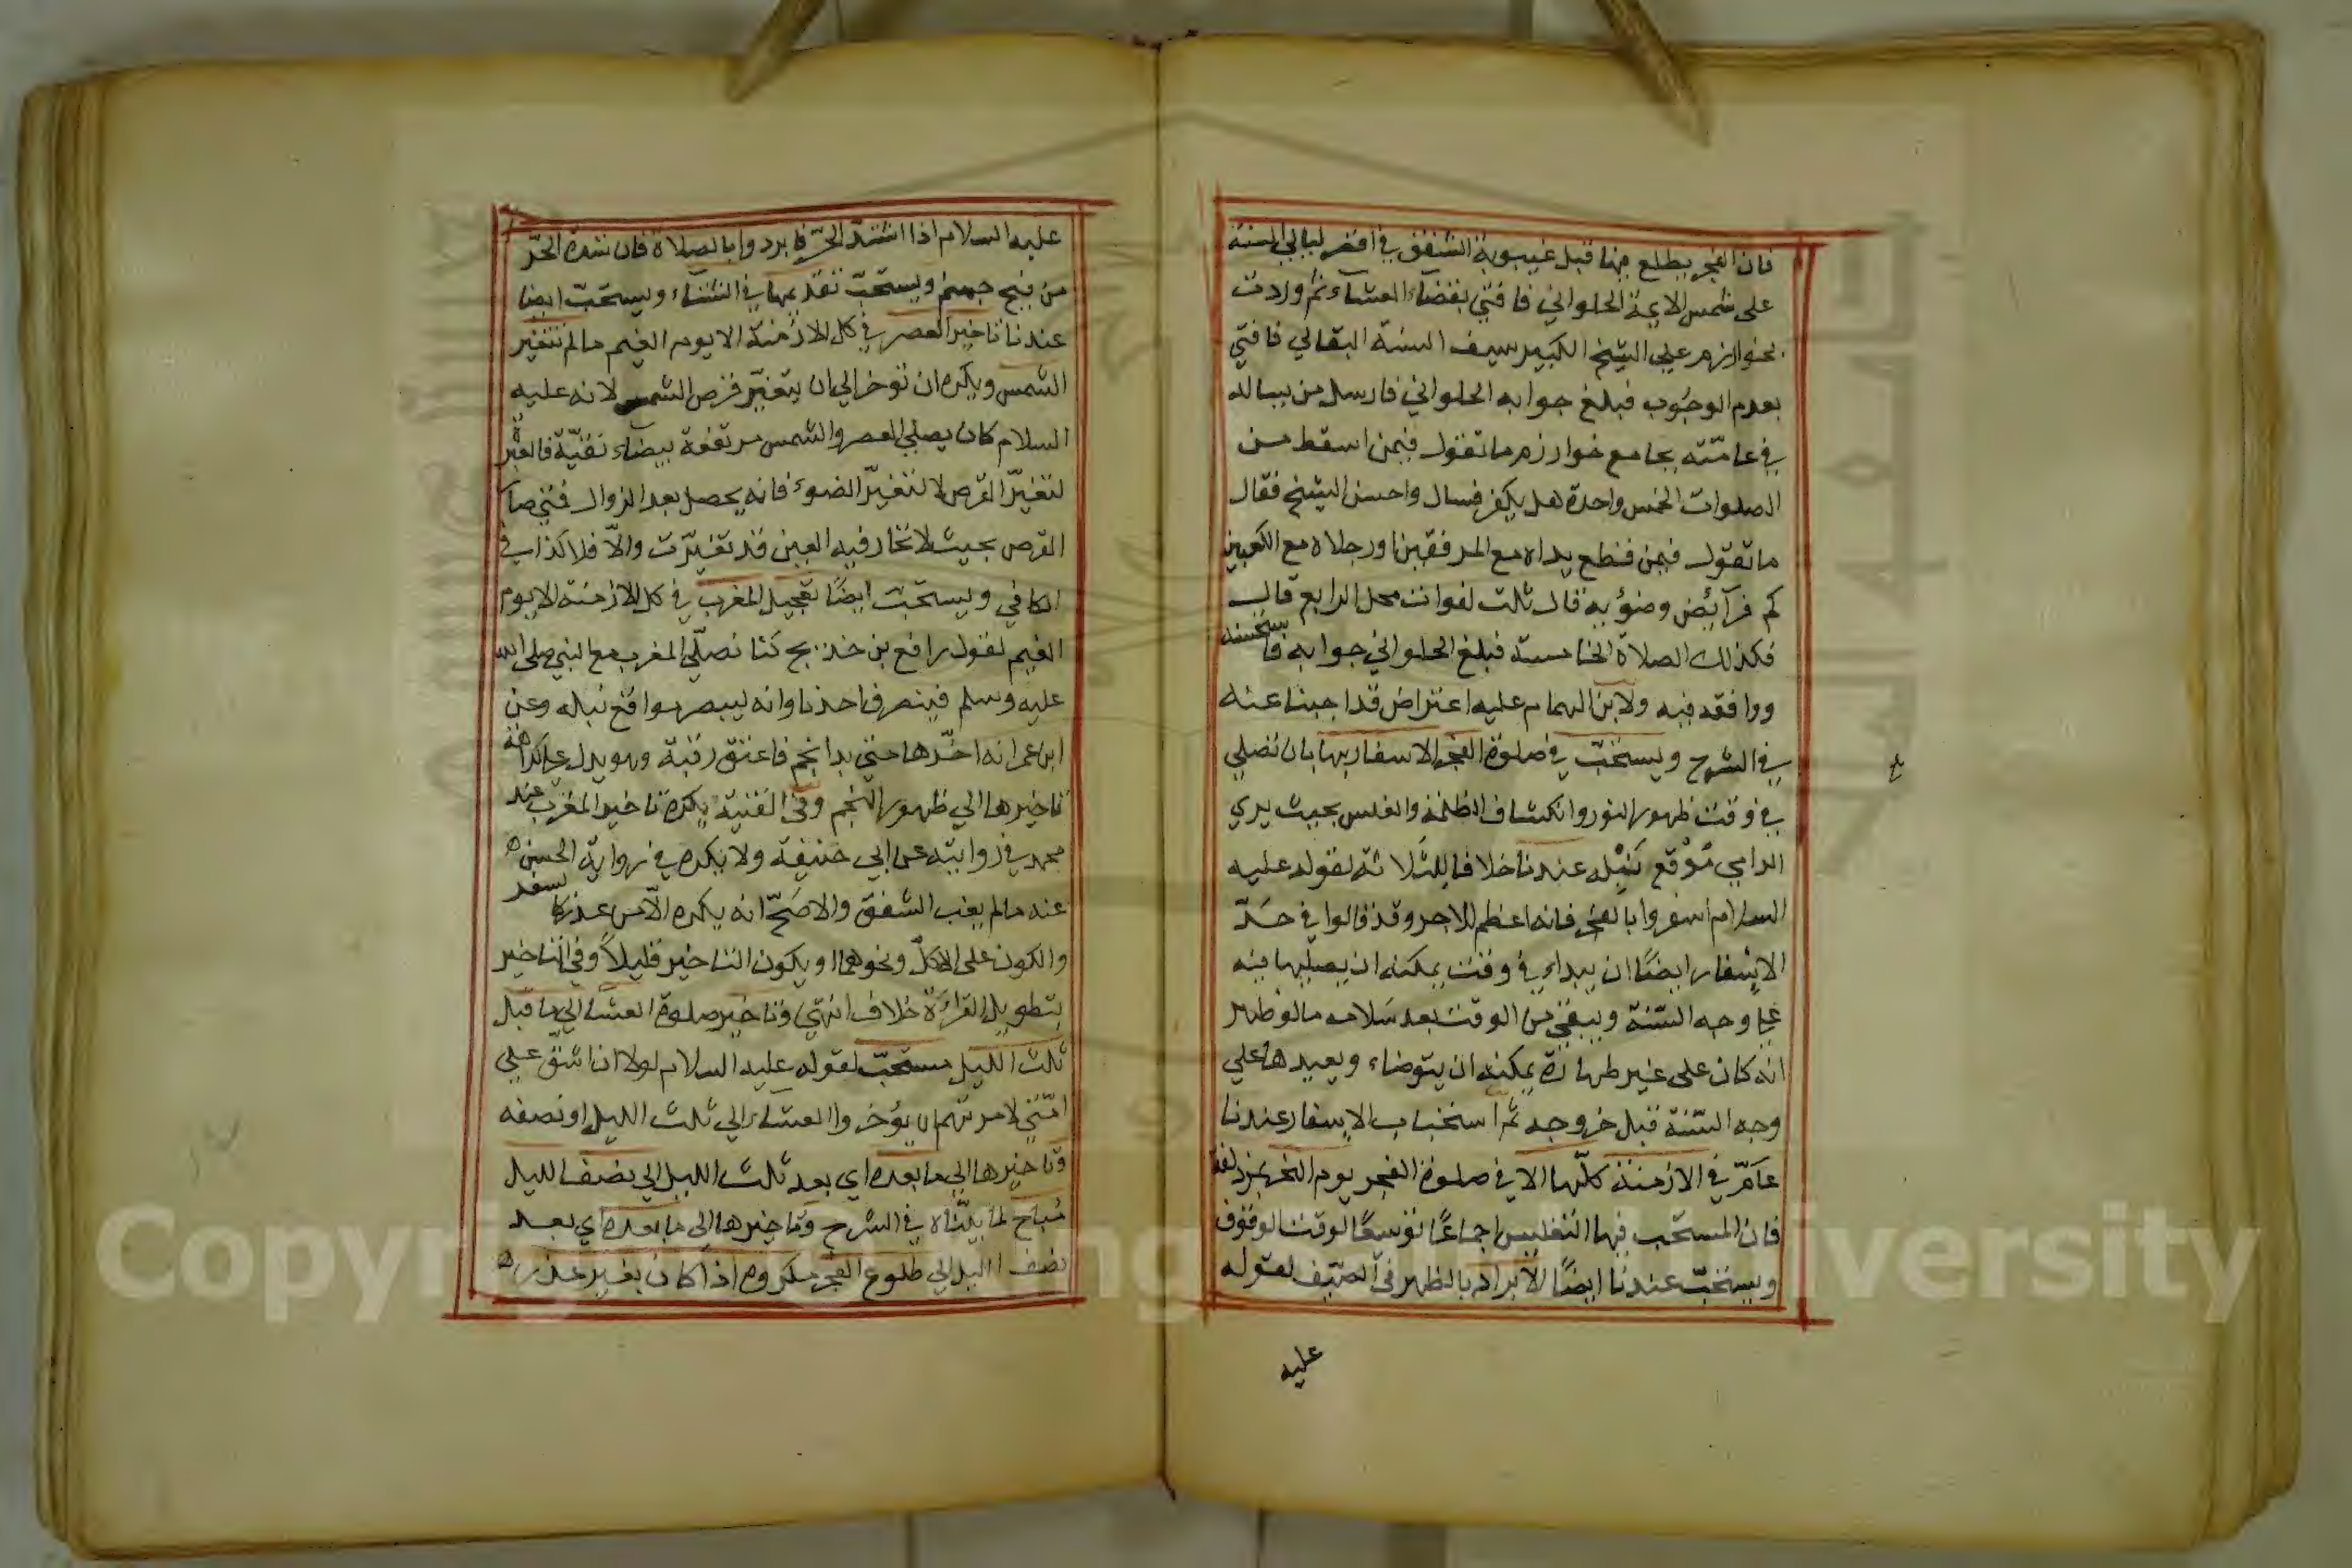 فان الفجر يطلع منها قبل غيبوبة الشفق في اقصر ليالي السنة
على شمس الايمة الحلواني فافتي بقضاء العشاء ثم وردت
بخوارزم علي الشيخ الكبير سيف السنة البقالي فافتي
بعدم الوجوب فبلغ جوابه الحلواني فارسل من يساله
في عامّته بجامع خوارزم ما تقول فيمن اسقط من
الصلوات الخمس واحدة هل يكفر فسال واحسن الشيخ فقال
ما تقول فيمن قطع يداه مع المرفقين او رجلاه مع الكعبين
كم فرآئض وضوُبه قال ثلث لفوات محل الرابع قال
فكذلك الصلاة الخامسة فبلغ الحلواني جوابه فاستحسنه
ووافقه فيه ولابن الهمام عليه اعتراض قد اجبنا عنه
في الشرح ويستحبّ في صلوة الفجر الاسفار بها بان تصلي
في وقت ظهور النور وانكشاف الظلمة والغلس بحيث يري
الرامي مَوْقع نَبْله عندنا خلافا للثلاثة لقوله عليه
السلام اسفروا بالفجر فانه اعظم للاجر وقد قالوا في حَدّ
الاسفار ايضًا ان يبداء في وقت يمكنه ان يصليها فيه
علي وجه السّنة ويبقي من الوقت بعد سَلامه ما لو ظهر
انه كان على غير طهارة يمكنه ان يتوضاء ويعيدها علي
وجه السّنة قبل خروجه ثم استحباب الاسفار عندنا
عَامّ في الازمنة كلّها الا في صلوة الفجر يوم النحر بمزدلفة
فان المستحب فيها التغليس اجماعًا توسعًا لوقت الوقوف
ويستحبّ عندنا ايضًا الابراد بالظهر في الصّيف لقوله
عليه
عليه السلام اذا اشتدّ الحرّ فابردوا بالصلاة فان شدة الحرّ
من فيح جهنم ويستحبّ تقديمها في الشتاء ويستحبّ ايضا
عندنا تاخير العصر في كل الازمنة الا يوم الغيم ما لم تتغير
الشمس ويكره ان توخر الي ان يتغيّر قرص الشمس لانه عليه
السلام كان يصلي العصر والشمس مرتفعة بيضاء نقيّة فالعبرة
لتغيّر القرص لا لتغيّر الضوء فانه يحصل بعد الزوال فمتي صار
القرص بحيث لا تحار فيه العين فقد تغيّرت والّا فلا كذا في
الكافي ويستحبّ ايضًا تعجيل المغرب في كل الازمنة الا يوم
الغيم لقول رافع بن خديج كنّا نصلّي المغرب مع النبي صلى الله
عليه وسلم فينصرف احدنا وانه ليبصر مواقع نبله وعن
ابن عمر انه اخّرها حتي بدا نجم فاعتق رقبة وهو يدل علي كراهة
تاخيرها الي ظهور النجم وفي القنية يكره تاخير المغرب عند
محمد في روايته عن ابي حنيفة ولا يكره في رواية الحسن
عنه ما لم يغب الشفق والاصَحّ انه يكره الّا من عذر كالسفر
والكون على الاكل ونحوهما او يكون التاخير قليلاً وفي التاخير
بتطويل القراءَة خلاف انتهي وتاخير صلوة العشا الي ما قبل
ثلث الليل مستحبّ لقوله عليه السلام لولا ان اشقّ علي
امّتي لامرتهم ان يؤخروا العشاء الي ثلث الليل او نصفه
وتاخيرها الي ما بعده اي بعد ثلث الليل الي نصف الليل
مُباح لما بيّناه في الشرح وتاخيرها الي ما بعده اي بعد
نصف الليل الي طلوع الفجر مكروه اذا كان بغير عذر